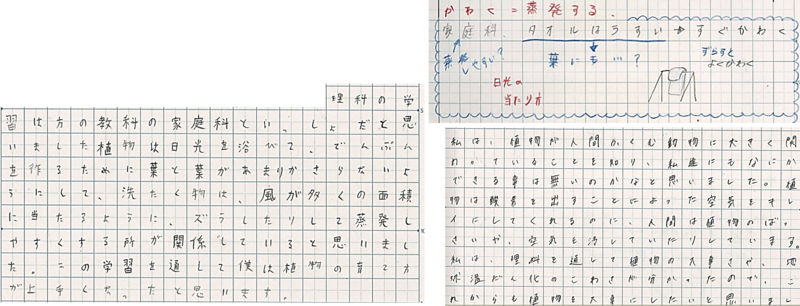 理科の学
習は方の教科の家庭科といっしょだと思
いました植物は日光を浴びて、でんぷん
を作るために葉と葉があまりかさならないよ
うにして、洗たく物は、風が多くの面積
に当たるように、ズラしたりして蒸発し
やすくする所が関係していると思いまし
た。この学習を通して僕は植物の育て方
が上手くなったと思います。
かわく=蒸発する。
家庭科、タオルはうすい→すぐかわく
蒸発しやすい?
葉にも…?
ずらすと
よくかわく
日光の
当たり方
私は、植物が人間かくむ動物に大きく関
わっていることを知り、私達にもなにか
できる事は無いのかなと思いました。植
物は酸素を出すことによって空気をキレ
イにしてくれるのに、人間は植物のばっ
さいや、空気を汚していたりしています。
私は、理科を通して植物の大事さや、地
球温だん化のこわさが分かったので、こ
れからも植物を大事にしたいと思いまし